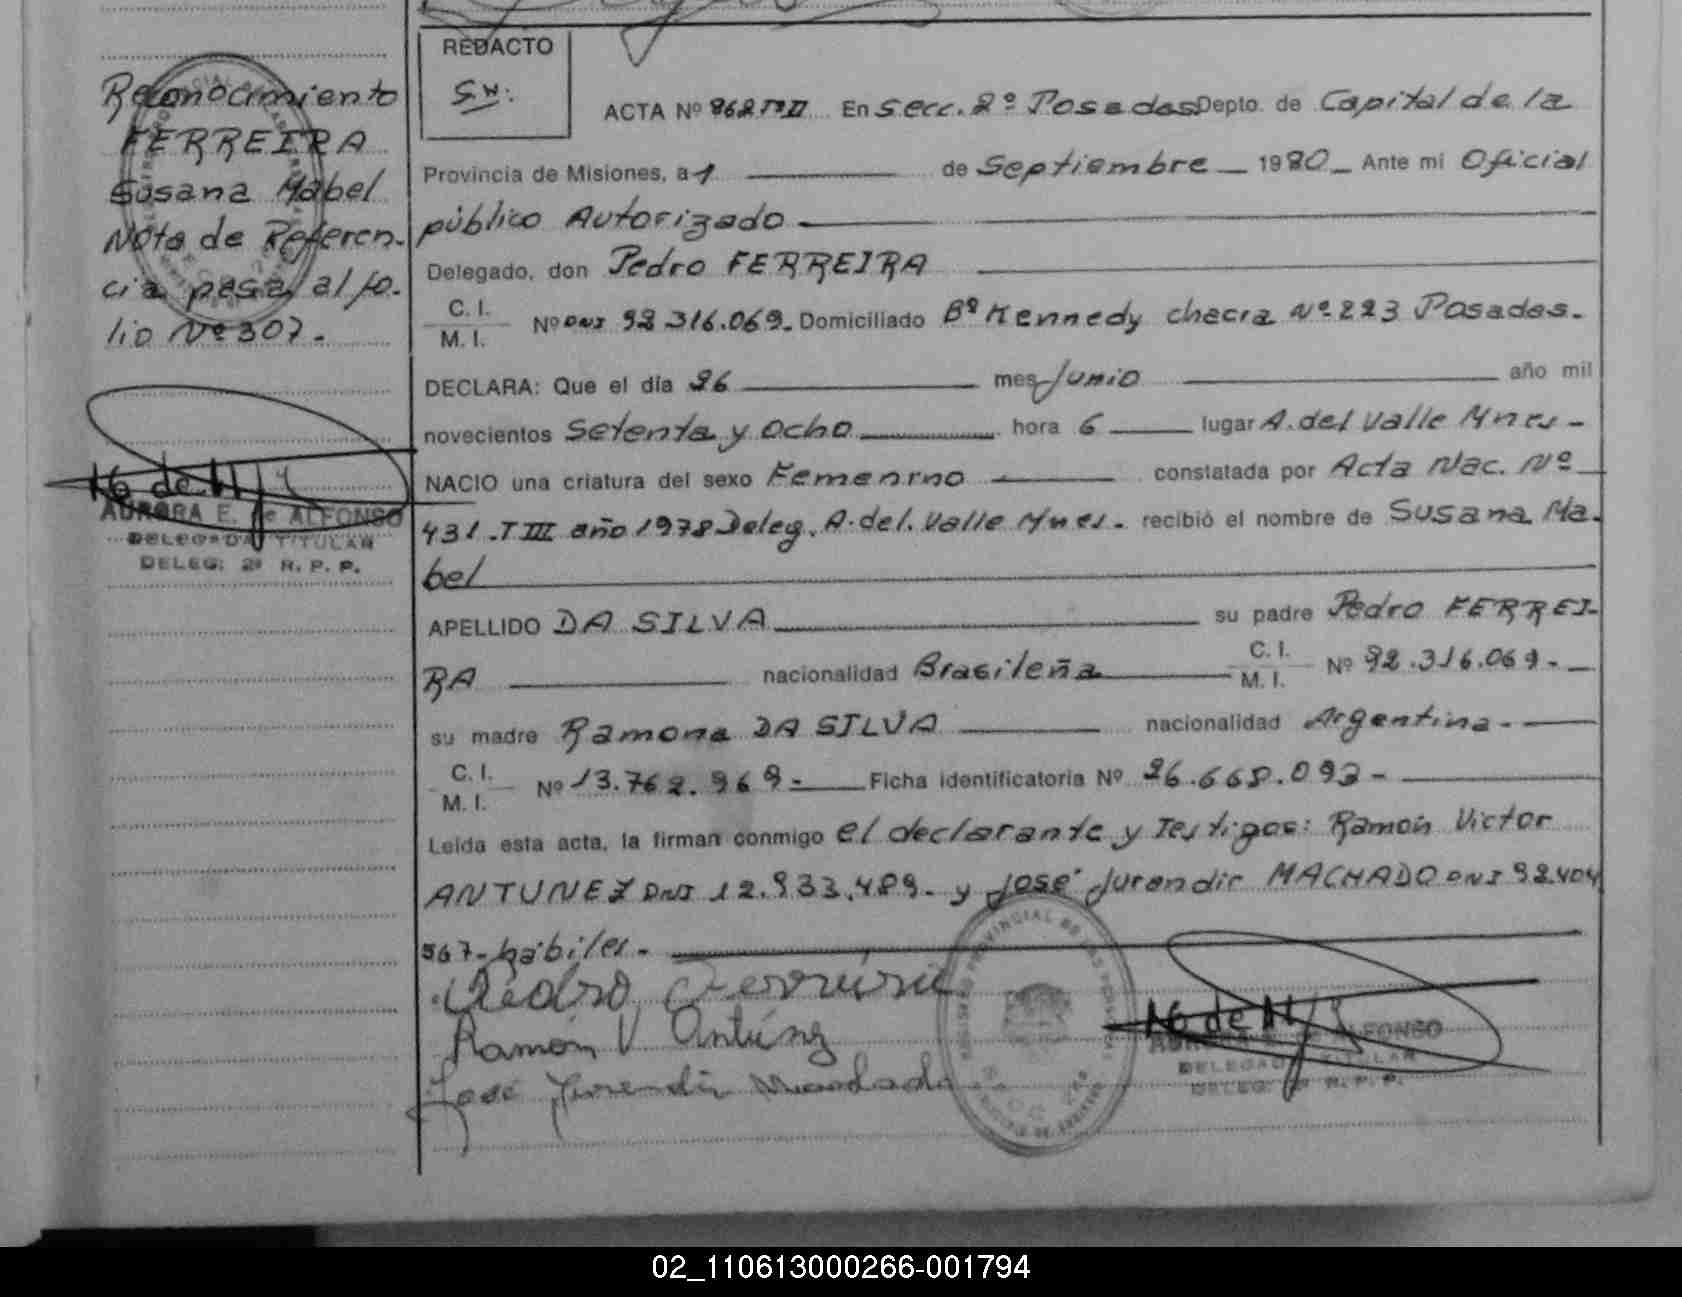 Reconocimiento
FERREIRA
Susana Mabel
Nota de Referen-
cia pasa al fo-
lio Nº 307.-
AURORA E. de ALFONSO
DELEGADA TITULAR
DELEG: 2ª R. P. P.
REDACTO
S.W:
ACTA Nº 862 Tº II En Secc. 2º Posadas Depto. de Capital de la
Provincia de Misiones, a 1 de Septiembre 1980 Ante mi Oficial
público Autorizado
Delegado, don Pedro FERREIRA
C. I.
M. I. Nº DNI 92.316.069.- Domiciliado Bº Kennedy chacra Nº 223 Posadas.
DECLARA: Que el día 26 mes Junio año mil
novecientos Setenta y Ocho hora 6 lugar A. del Valle Mnes-
NACIO una criatura del sexo Femenino constatada por Acta Nac. Nº
431.-T III año 1978 Deleg. A. del. Valle Mnes.- recibió el nombre de Susana Ma-
bel
APELLIDO DA SILVA su padre Pedro FERREI-
RA nacionalidad Brasileña C. I.
M. I. Nº 92.316.069.-
su madre Ramona DA SILVA nacionalidad Argentina.-
C. I.
M. I. Nº 13.762.969.- Ficha identificatoria Nº 26.668.093-
Leída esta acta, la firman conmigo el declarante y Testigos: Ramón Victor
ANTUNEZ DNI 12.933.489.- y José Jurandir MACHADO DNI 92.404
567.- hábiles.-
Pedro Ferreira
Ramón V Antúnez
José Jurandir Machado
ALFONSO
DELEGADA TITULAR
DELEG: 2ª R. P. P.
02_110613000266-001794